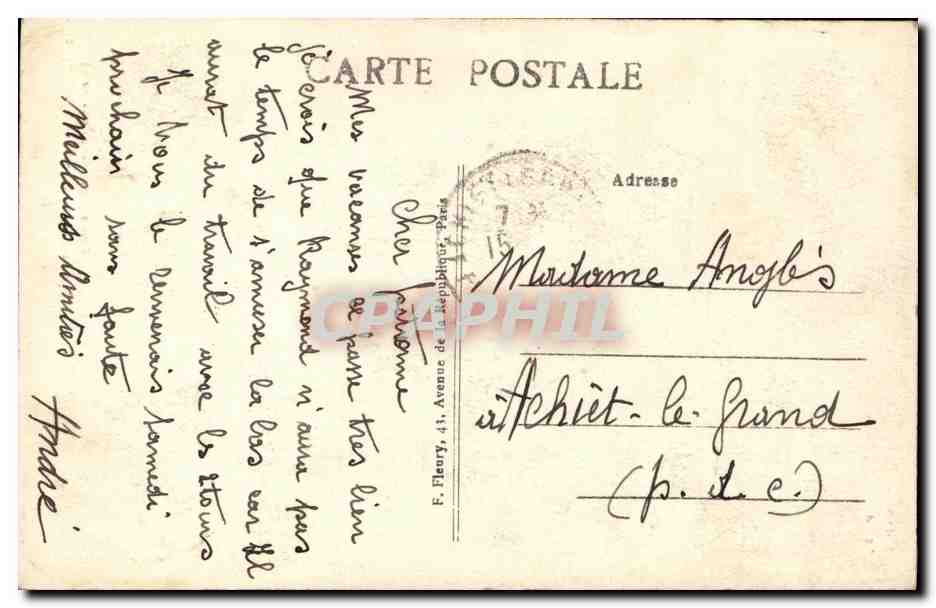 CARTE POSTALE
Adresse
Madame Anglès
à Achiet-le-Grand
(p. d. c.)
F. Fleury, 43, Avenue de la République, Paris
7
15
Cher
Mes vacances se passe très bien
Je crois que Raymond n'aura pas
le temps de s'amuser la bas car Il
aurat du travail avec les
Je vous le remenais samedi
prochain sans faute
Meilleurs Amitiés
André
CPAPHIL